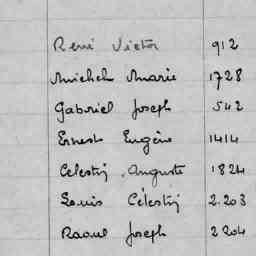 René Victor 912
Michel Marie 1728
Gabriel Joseph 542
Ernest Eugène 1414
Célestin Auguste 1824
Louis Célestin 2.203
Raoul Joseph 2204